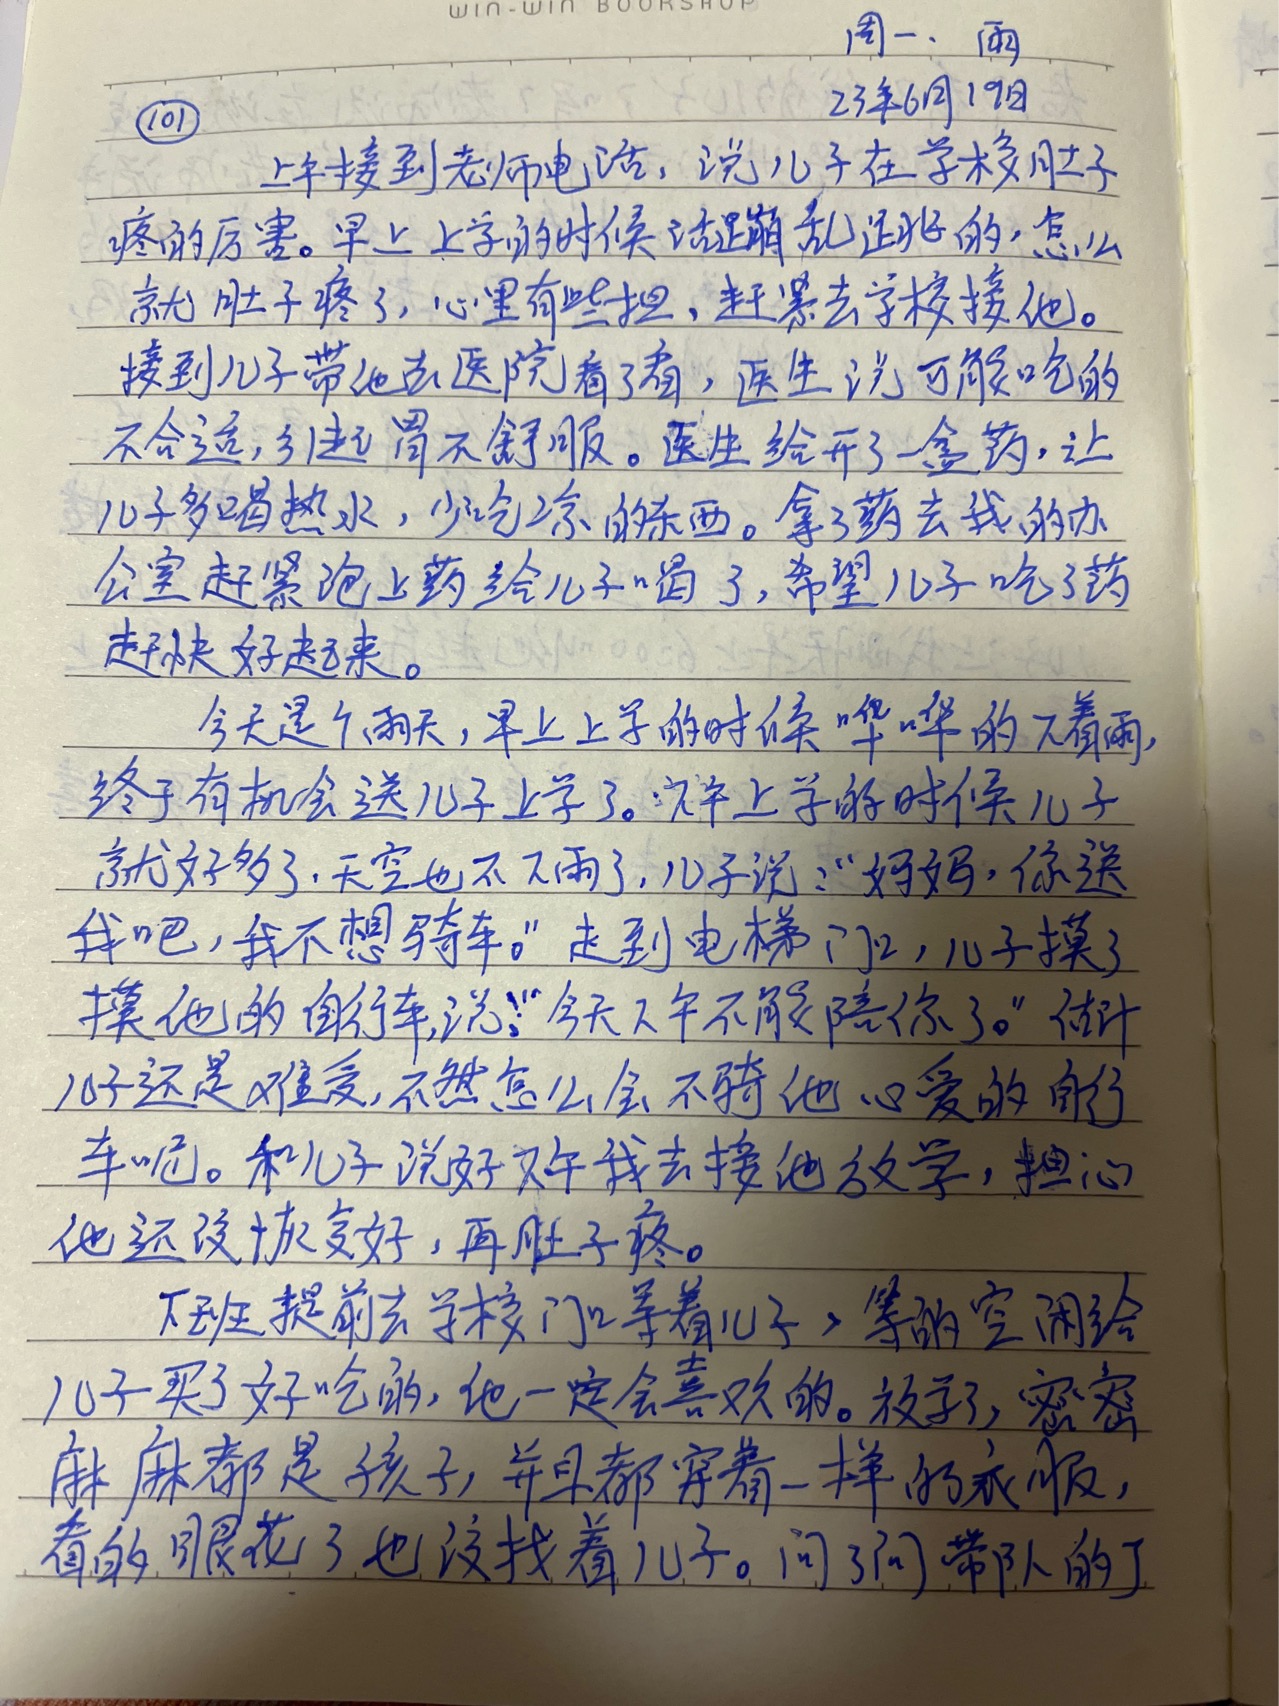 WIN-WIN BOOKSHOP
周一. 雨
23年6月19日
101
上午接到老师电话,说儿子在学校肚子
疼的厉害。早上上学的时候活蹦乱跳的,怎么
就肚子疼了,心里有些担,赶紧去学校接他。
接到儿子带他去医院看了看,医生说可能吃的
不合适,引起胃不舒服。医生给开了一盒药,让
儿子多喝热水,少吃凉的东西。拿了药去我的办
公室赶紧泡上药给儿子喝了,希望儿子吃了药
赶快好起来。
今天是个雨天,早上上学的时候哗哗的下着雨,
终于有机会送儿子上学了。下午上学的时候儿子
就好多了.天空也不下雨了,儿子说:“妈妈,你送
我吧,我不想骑车。”走到电梯门口,儿子摸了
摸他的自行车,说:“今天下午不能陪你了。”估计
儿子还是难受,不然怎么会不骑他心爱的自行
车呢。和儿子说好下午我去接他放学,担心
他还没恢复好,再肚子疼。
下班提前去学校门口等着儿子,等的空闲给
儿子买了好吃的,他一定会喜欢的。放学了,密密
麻麻都是孩子,并且都穿着一样的衣服,
看的眼花了也没找着儿子。问了问带队的丁